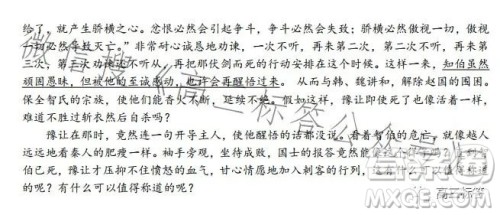 给了，就产生骄横之心。忿恨必然会引起争斗，争斗必然会失败；骄横必然傲视一切，傲视
一切必然导致灭亡。”非常耐心诚恳地劝谏，一次不听，再来第二次，第二次不听，再来第
三次，第三次劝谏还不听从，再把那伏剑而死的行动安排在这个时候。这样一来，知伯虽然
顽固愚昧，但被他的至诚感动，也许会再醒悟过来。从而与韩、魏讲和，解除赵国的围困。
保全智氏的宗族，使他们能香火不断，延续不绝。假如这样，豫让即使死了也像活着一样，
难道不胜过斩衣然后自杀吗？
豫让在那时，竟然连一句开导主人，使他醒悟的话都没说。看着智伯的危亡，就像越人
远远地看秦人的肥瘦一样。袖手旁观，坐待成败，国士的报答竟然能像这个样子吗？
伯已死，豫让才压抑不住愤怒的血气，甘心情愿地加入刺客的行列，这有什么可以值得称道
的呢？有什么可以值得称道的呢？